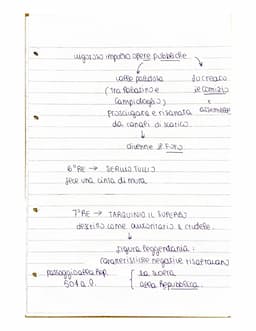 vigoroso impulso opere pubbliche
valle paludosa
(tra Palatino e
Campidoglio)
prosciugare e risanata
da canali di scarico
divenne il Foro
si creano
le Comizio
assemblee
6° RE → SERVIO TULLIO
fece una cinta di mura
7° RE → TARQUINIO IL SUPERBO
descritto come autoritario e crudele
figura leggendaria:
caratteristiche negative risaltavano
passaggio alla Rep.
509 a.C.
la scelta
alla Repubblica